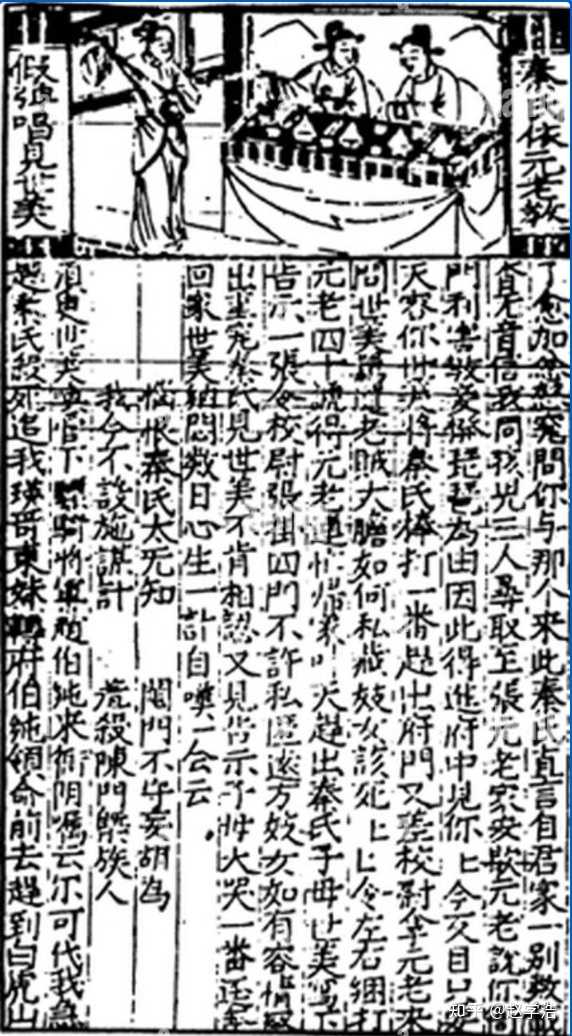 秦 依元老教
假彈唱見世美
了愈加忿怒究問你与那个來此秦 直言自君家一別数
无音信我同孩兒三人尋取至張元老家安歇元老說你
門利害教妾 琵琶為由因此得進府中見你上今父目
天容你世美将秦氏棒打一番趕出府門又差校尉拿元老來
問世美 道老賊大膽如何私藏妓女該死上上令左右綑打
元老四十 得元老連忙帰家 天趕出秦氏子母世美
告示一張令校尉張掛四門不許私匿遠方妓女如有容情
出重究秦氏見世美不肯相認又見告示 大哭一番
回家世美納悶数日心生一計自嘆一会云
惱恨秦氏太无知 閨門不守妄胡為
我今不設施謀計 羞殺陳門 族人
須臾世美 官下 将軍趙伯純來衙附嘱云尔可代我急
趕秦氏殺死追我瑛哥東妹 府伯純領命前去趕到白虎山
知乎 @赵字浩